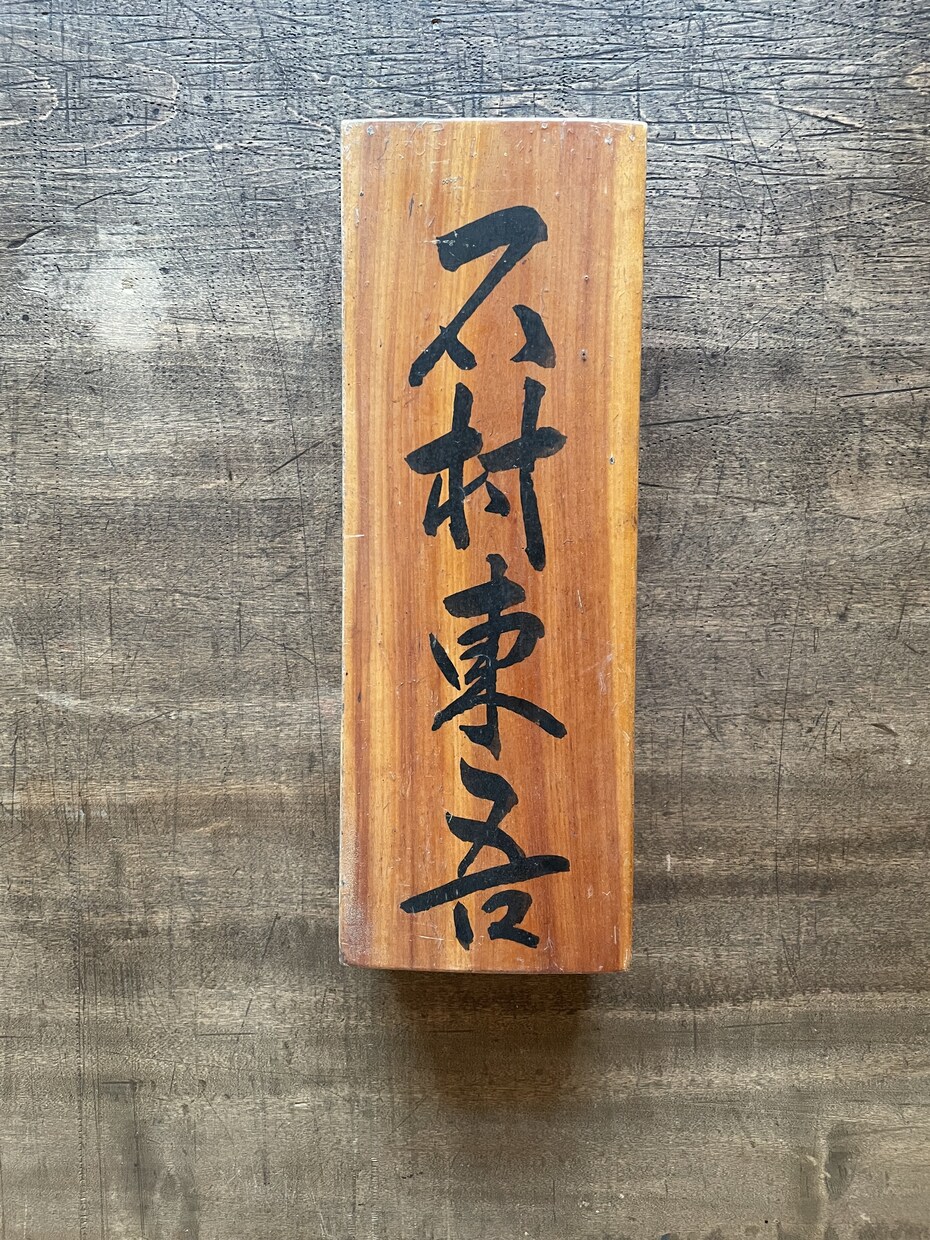 石村東吾